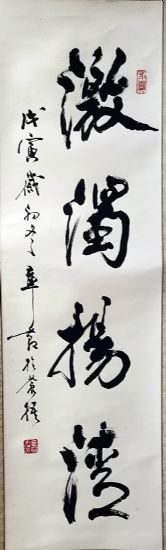 激濁揚清
戊寅歲初冬章